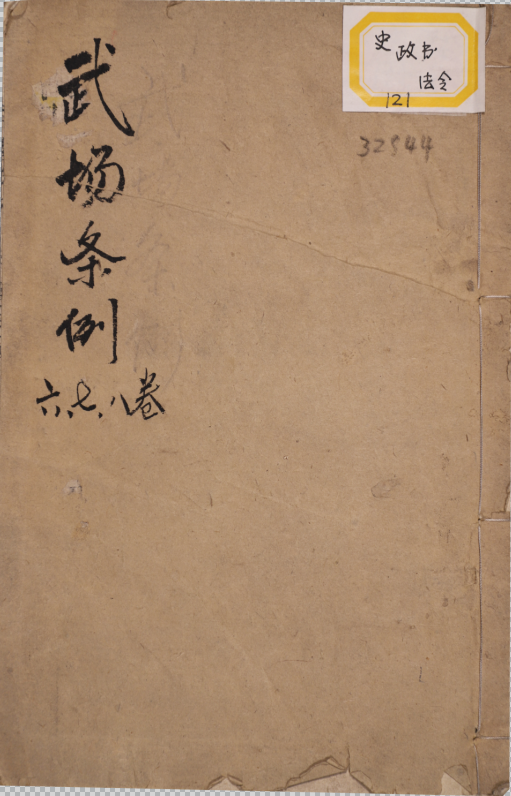 史政书
法令
121
32544
武场条例
六、七、八卷